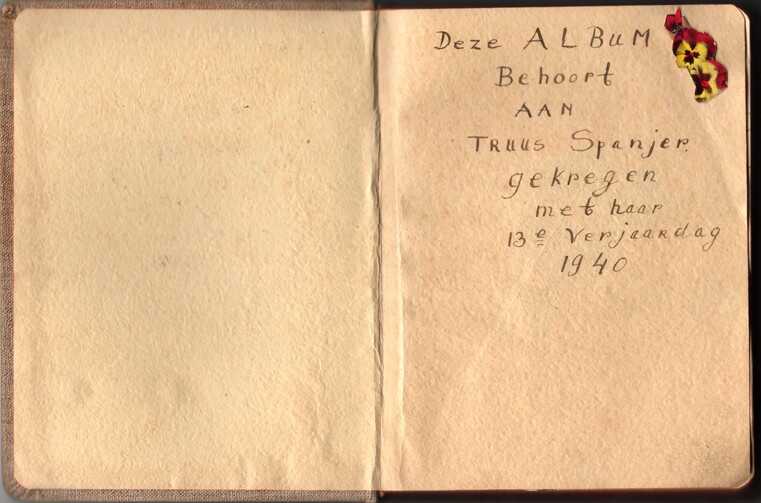 Deze ALBUM
Behoort
AAN
TRUUS Spanjer.
gekregen
met haar
13e Verjaardag
1940